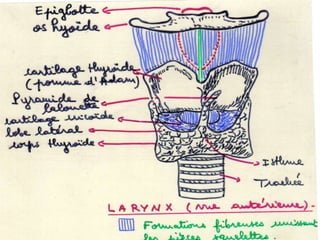 Epiglotte
os hyoïde
cartilage thyroïde
(pomme d'Adam)
Pyramide de
Lalouette
cartilage cricoïde
lobe latéral
corps thyroïde
Isthme
Trachée
LARYNX (vue antérieure).
Formations fibreuses unissant
les pièces squelettes.